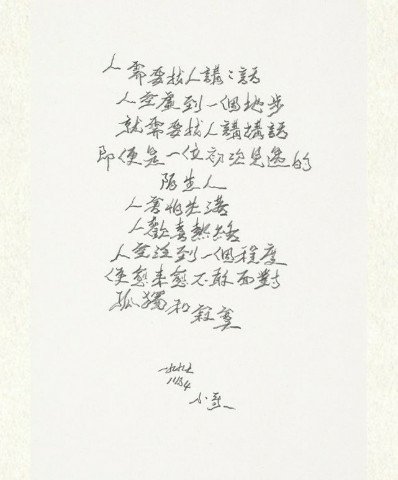 人需要找人講講話
人空虛到一個地步
就需要找人講講話
即便是一位初次見過的
陌生人
人害怕生活
人歡喜熱
人空泛到一個程度
便愈來愈不敢面對
孤獨和寂寞
一九九七
小